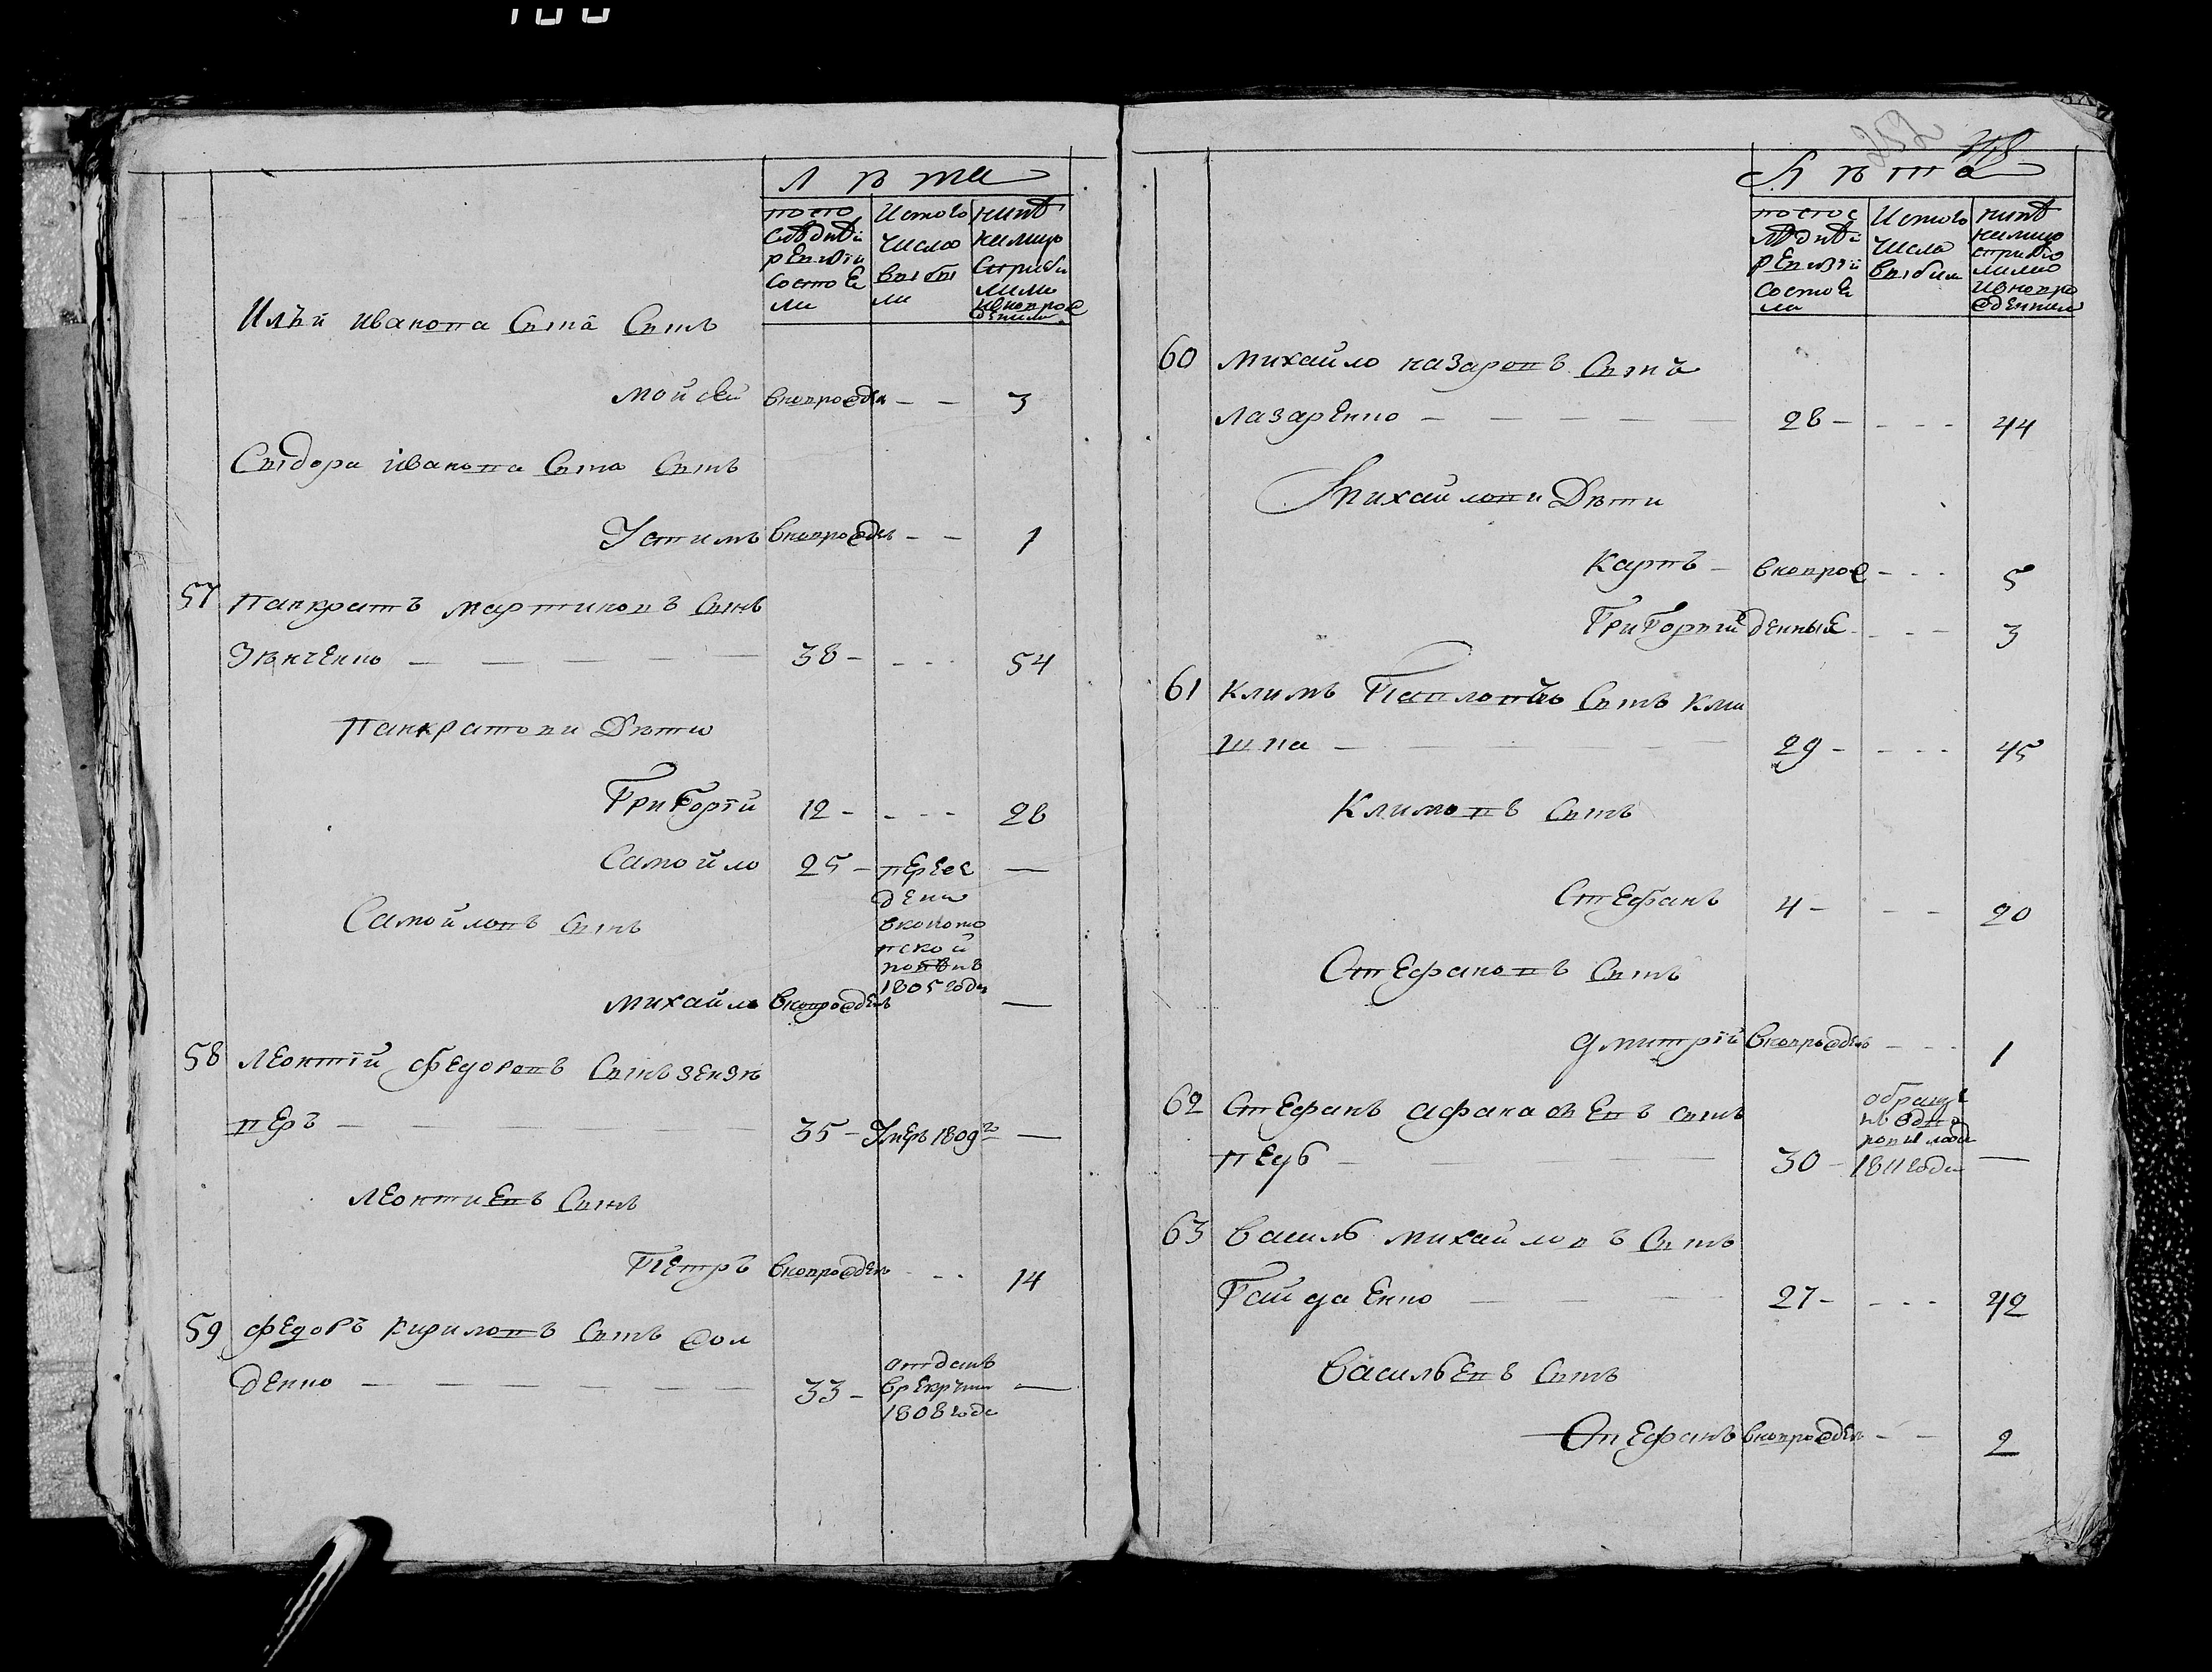 252
Лѣта
По по
слѣдней
ревизіи
состоя
ли
Изтого
числа
выбы
ли
нинѣ
налицо
Ильи Иванова сына сынъ
Мойсей вновьрожден - - 3
Сыдора Иванова сына сынъ
Устимъ вновьрожденъ - - 1
57 Панкратъ Мартиновъ сынъ
Зѣнченко - - - - - 38 - - - - 54
Панкратови дѣти
Григорій 12 - - - - 28
Самойло 25 - переве
дени
вконото
пской
повѣтъ
1805 года
—
Самойловъ сынъ
Михайло вновьрожденъ —
58 Леонтій Федоровъ сынъ Зензе
веръ - - - 35 - умеръ 1809го —
Леонтиевъ сынъ
Петръ вновьрожденъ - - - 14
59 Федоръ Кириловъ сынъ
денко - - - - - - 33 -
отданъ
врекрути
1808 года
—
Лѣта
по пос
лѣдней
ревизіи
состоя
ли
Изтого
числа
выбыли
нинѣ
налицо
60 Михайло Назаровъ сынъ
Лазаренко - - - - - 28 - - - - 44
Михайлови дѣти
Карпъ - вновьрож - - - 5
Григорий денные - - - - 3
61 Климъ Павловъ сынъ Кли
шна - - - - 29 - - - - 45
Климовъ сынъ
Стефанъ 4 - - - 20
Стефановъ сынъ
Дмитрій вновьрожденъ - - - 1
62 Стефанъ Афанасіевъ сынъ
Педь - - - - 30 -
1811 года
—
63 Василь Михайловъ сынъ
Гайдаенко - - - 27 - - - - 42
Васильевъ сынъ
Стефанъ вновьрожденъ - - 2